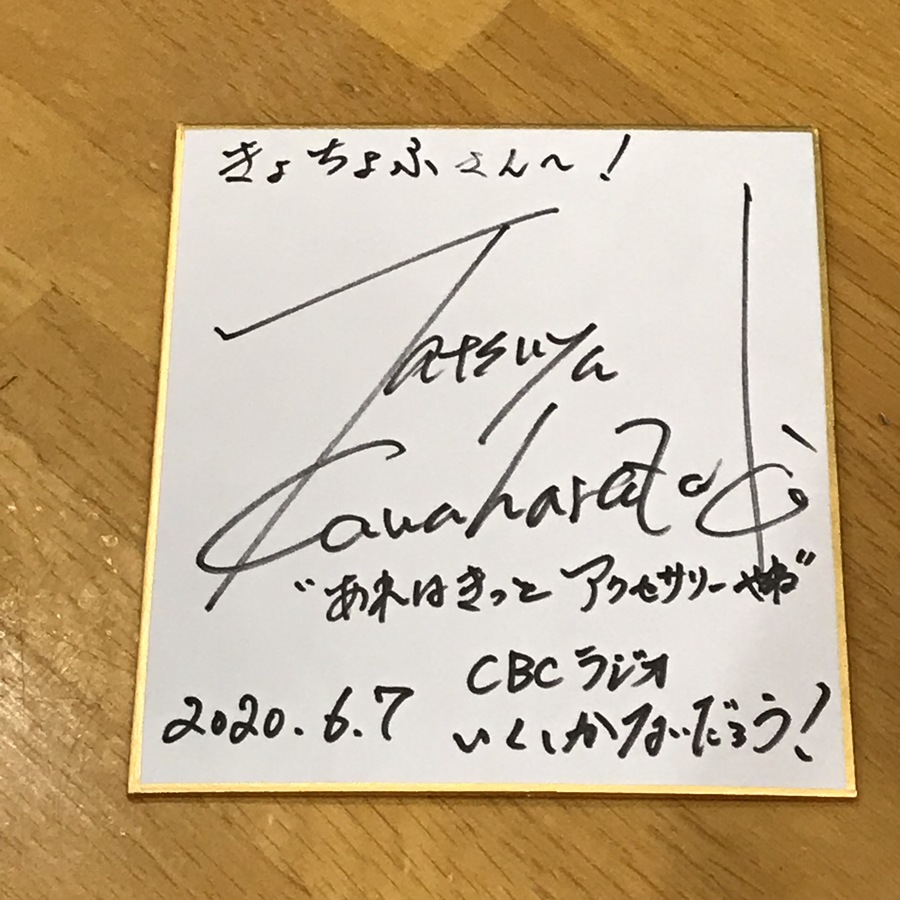 きょちょふさんへ!
Tatsuya
Kawahara
"あれはきっとアクセサリーやね"
CBCラジオ
2020.6.7 いくしかないだろう!